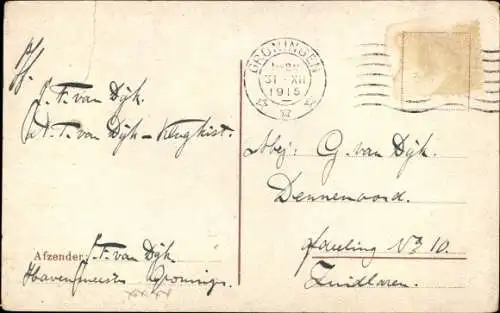 p.f.
J. F. van Dijk.
A. T. van Dijk - Klugkist.
Afzender: J. F. van Dijk
Havenmeester Groningen.
GRONINGEN
31 - XII
1915
G. van Dijk.
Dennenoord.
Afdeeling No 10.
Zuidlaren.